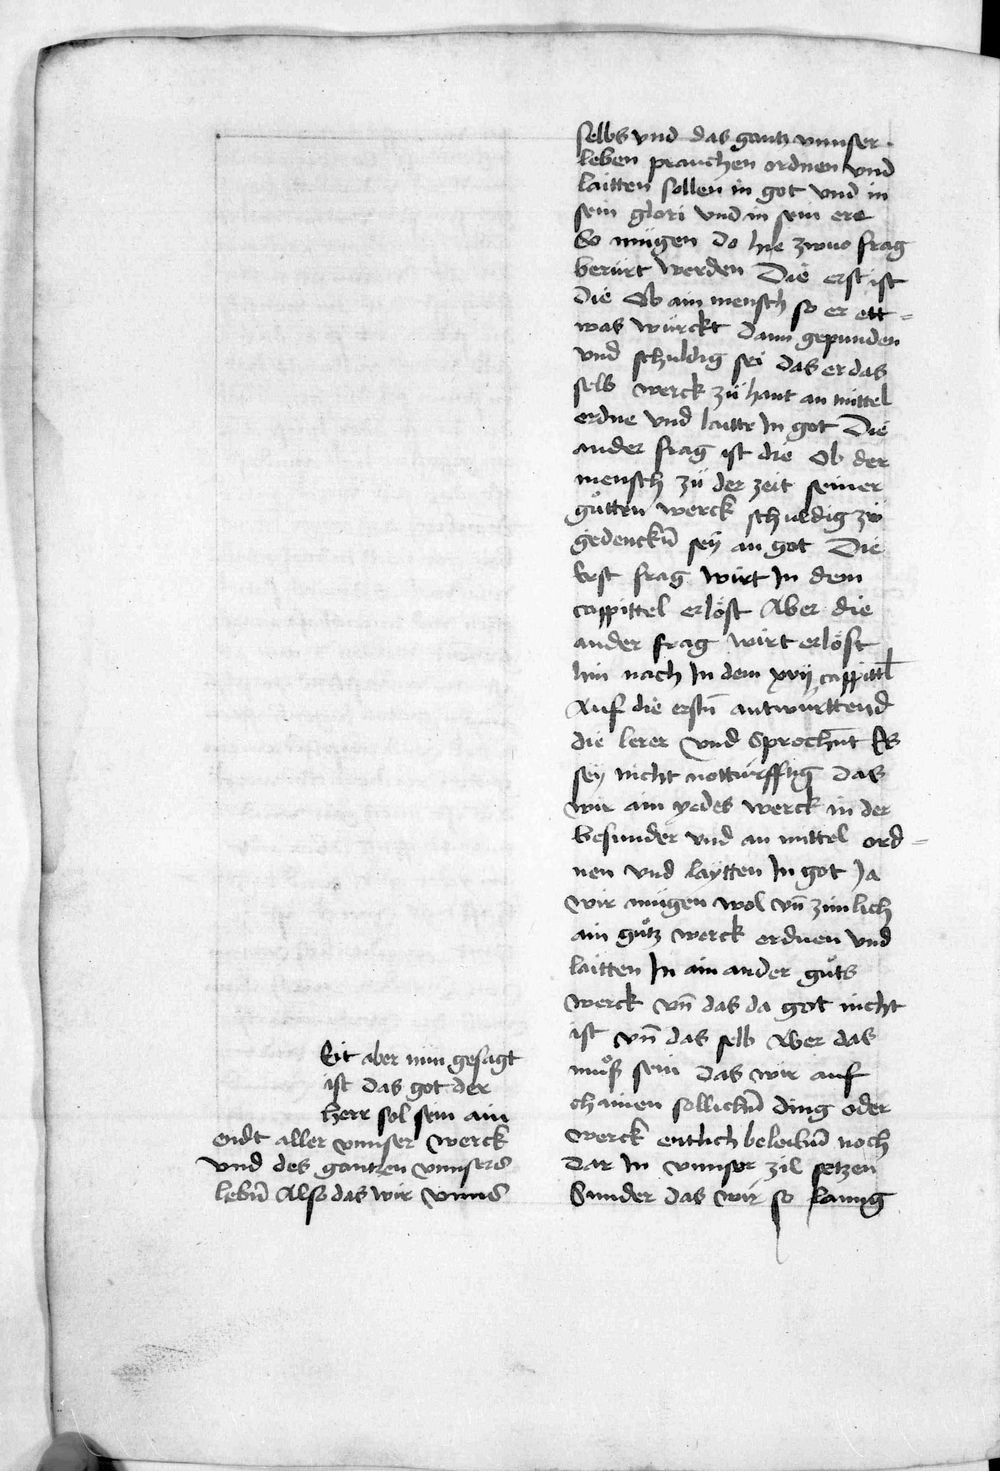 Eit aber nün gesagt
ist das got der
herr sol sein ain
endt aller vnnser werck
vnd des gantzen vnnsers
lebn̄ Also das wir vnns
selbs vnd das gantz vnnser
leben prauchen ordnen vnd
laitten sollen in got vnd in
sein glori vnd in sein ere
So mügen do hie zwuo frag
berürt werden Die erst ist
die Ob ain mensch so er ett-
was würckt dann gepunden
vnd schuldig sei das er das
selb werck zu hant an mittel
ordne vnd laitte In got Die
ander frag ist die Ob der
mensch zü der zeit seiner
gůtten werck schuldig zw
gedenckn̄ sey an got Die
Erst frag wirt In dem
cappittel erlöst Aber die
ander frag wirt erlöst
hin nach In dem xvij cappittl
Auf die erstn̄ antwürttend
die lerer vnd Sprechn̄t Es
sey nicht notturfftig das
wir ain yedes werck in der
besunder vnd an mittel ord-
nen vnd laytten In got Ja
wir mügen wol vn̄ zimlich
ain gůtz werck ordnen vnd
laitten In ain ander gůts
werck vn̄ das da got nicht
ist vn̄ das selb Aber das
můß sein das wir auf
chainen sollickn̄ ding oder
werck entlich beleibn̄ noch
dar In vnnser zil setzen
Sunder das wir so lanng